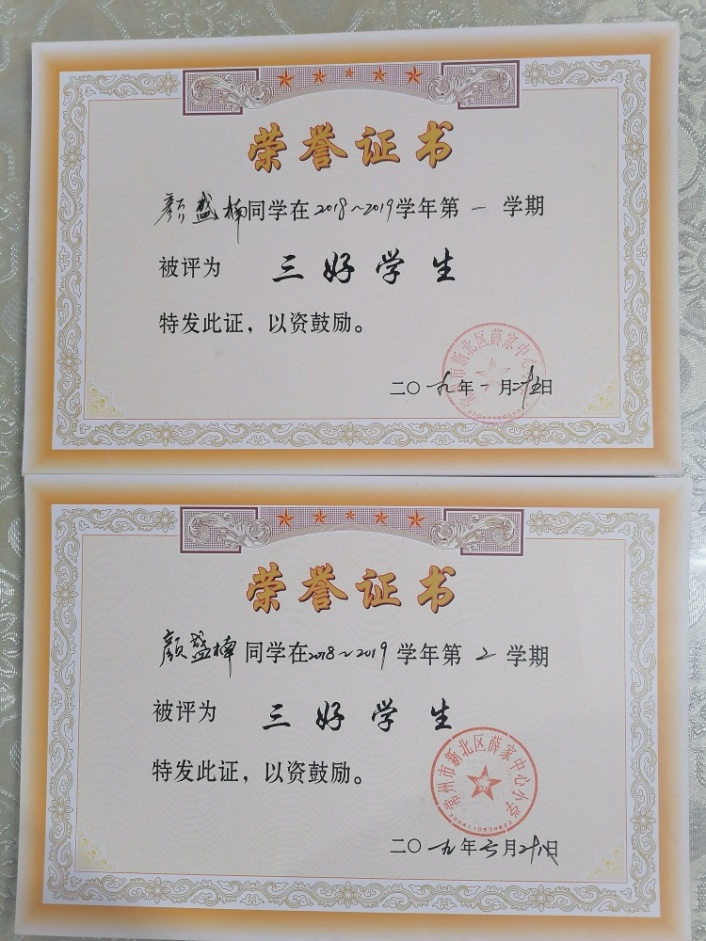 荣誉证书
颜盛楠同学在2018~2019学年第一学期
被评为 三好学生
特发此证，以资鼓励。
常州市新北区薛家中心
二〇一九年一月二十五日
荣誉证书
颜盛楠同学在2018~2019学年第2学期
被评为 三好学生
特发此证，以资鼓励。
常州市新北区薛家中心小学
二〇一九年六月二十八日